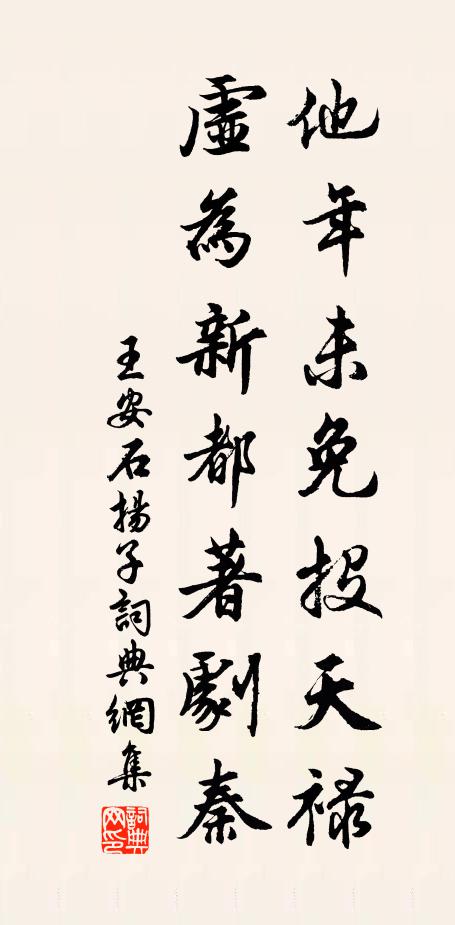 他年未免投天祿
虛為新都著劇秦
王安石揚子詞典網集
詞典網印